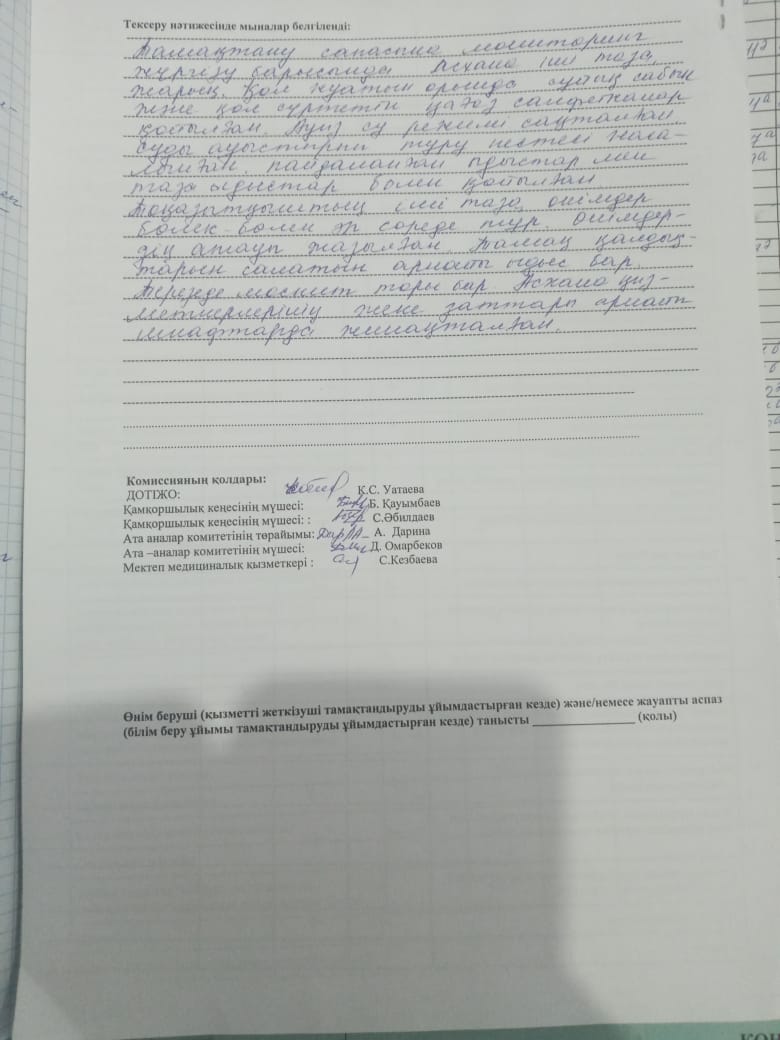 Тексеру нәтижесінде мыналар белгіленді:
Тамақтану сапасына мониторинг
жүргізу барысында Асхана іші таза,
жарық. Қол жуатын орында сұйық сабын
және қол сүртетін қағаз салфеткалар
қойылған. Ауыз су режимі сақталған.
Суды ауыстырып тұру кестесі жаса-
лынған. пайдаланған ыдыстар мен
таза ыдыстар бөлек қойылған
Тоңазытқыштың іші таза өнімдер
бөлек-бөлек сөреде тұр. Өнімдер-
дің атауы жазылған. Тамақ қалдық-
тарын салатын арнайы ыдыс бар.
Терезеде москит торы бар. Асхана қыз-
меткерлерінің жеке заттары арнайы
шкафтарда жинақталған.
Комиссияның қолдары:
ДОТІЖО: К.С. Уатаева
Қамқоршылық кеңесінің мүшесі: Б. Қауымбаев
Қамқоршылық кеңесінің мүшесі: : С.Әбилдаев
Ата аналар комитетінің төрайымы: А. Дарина
Ата –аналар комитетінің мүшесі: Д. Омарбеков
Мектеп медициналық қызметкері : С.Кезбаева
Өнім беруші (қызметті жеткізуші тамақтандыруды ұйымдастырған кезде) және/немесе жауапты аспаз
(білім беру ұйымы тамақтандыруды ұйымдастырған кезде) танысты _______________ (қолы)